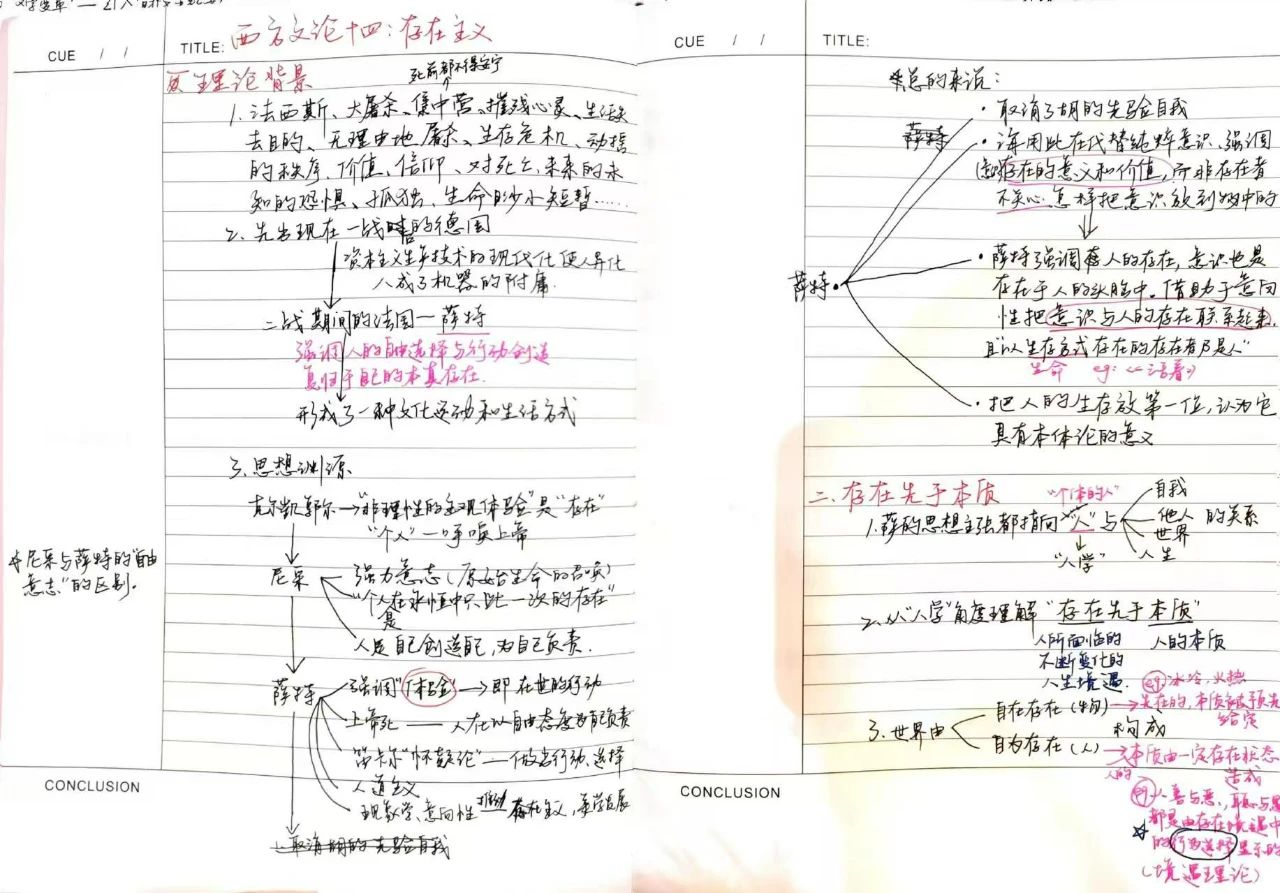 CUE / /
TITLE: 西方文论十四:存在主义
一、理论背景
死前都不得安宁
1. 法西斯、大屠杀、集中营、摧残心灵、生活失
去目的、无理由地屠杀、生存危机、动摇
的秩序、价值、信仰、对死亡、未来的未
知的恐惧、孤独、生命的渺小短暂……
2. 先出现在一战后的德国
资本主义生产技术的现代化使人异化
人成了机器的附庸.
二战期间的法国—萨特
强调人的自由选择与行动创造
复归于自己的本真存在.
形成了一种文化运动和生活方式
3. 思想渊源
克尔凯郭尔→"非理性的主观体验"是"存在"
"个人"—呼唤上帝
*尼采与萨特的"自由
意志"的区别.
尼采
强力意志(原始生命的召唤)
"个人在永恒中只此一次的存在"
是
人是自己创造自己,为自己负责.
萨特
强调"体验"→即在世的行动
上帝死——人在以自由态度为自己负责
笛卡尔"怀疑论"—做出行动、选择
人道主义
现象学、意向性 推动 存在主义,
取消胡的先验自我
CONCLUSION
CUE / /
TITLE:
*总的来说:
·取消了胡的先验自我
萨特
·海用此在代替纯粹意识、强调
存在的意义和价值,所非存在者
不关心.怎样把意识放到物中的
萨特·
·萨特强调着人的存在,意识也是
存在于人的头脑中.借助于意向
性把意识与人的存在联系起来,
且"以生存方式存在的存在者乃是人"
生命 eg:《活着》
·把人的生存放第一位,认为它
具有本体论的意义
二、存在先于本质
"个体的人"
1. 萨的思想主张都指向"人"与
自我
他人 的关系
世界
人生
"人学"
2. 从"人学"角度理解"存在先于本质"
人所面临的 人的本质
不断变化的
人生境遇.
eg 水冷,火热
3. 世界由
自在存在(物)→先在的,本质被预先
给定
构成
自为存在(人)→本质由一定存在状态
人的 造成
eg 人善与恶,
都是由存在境遇中
☆的行为选择显示的
(境遇理论)
CONCLUSION